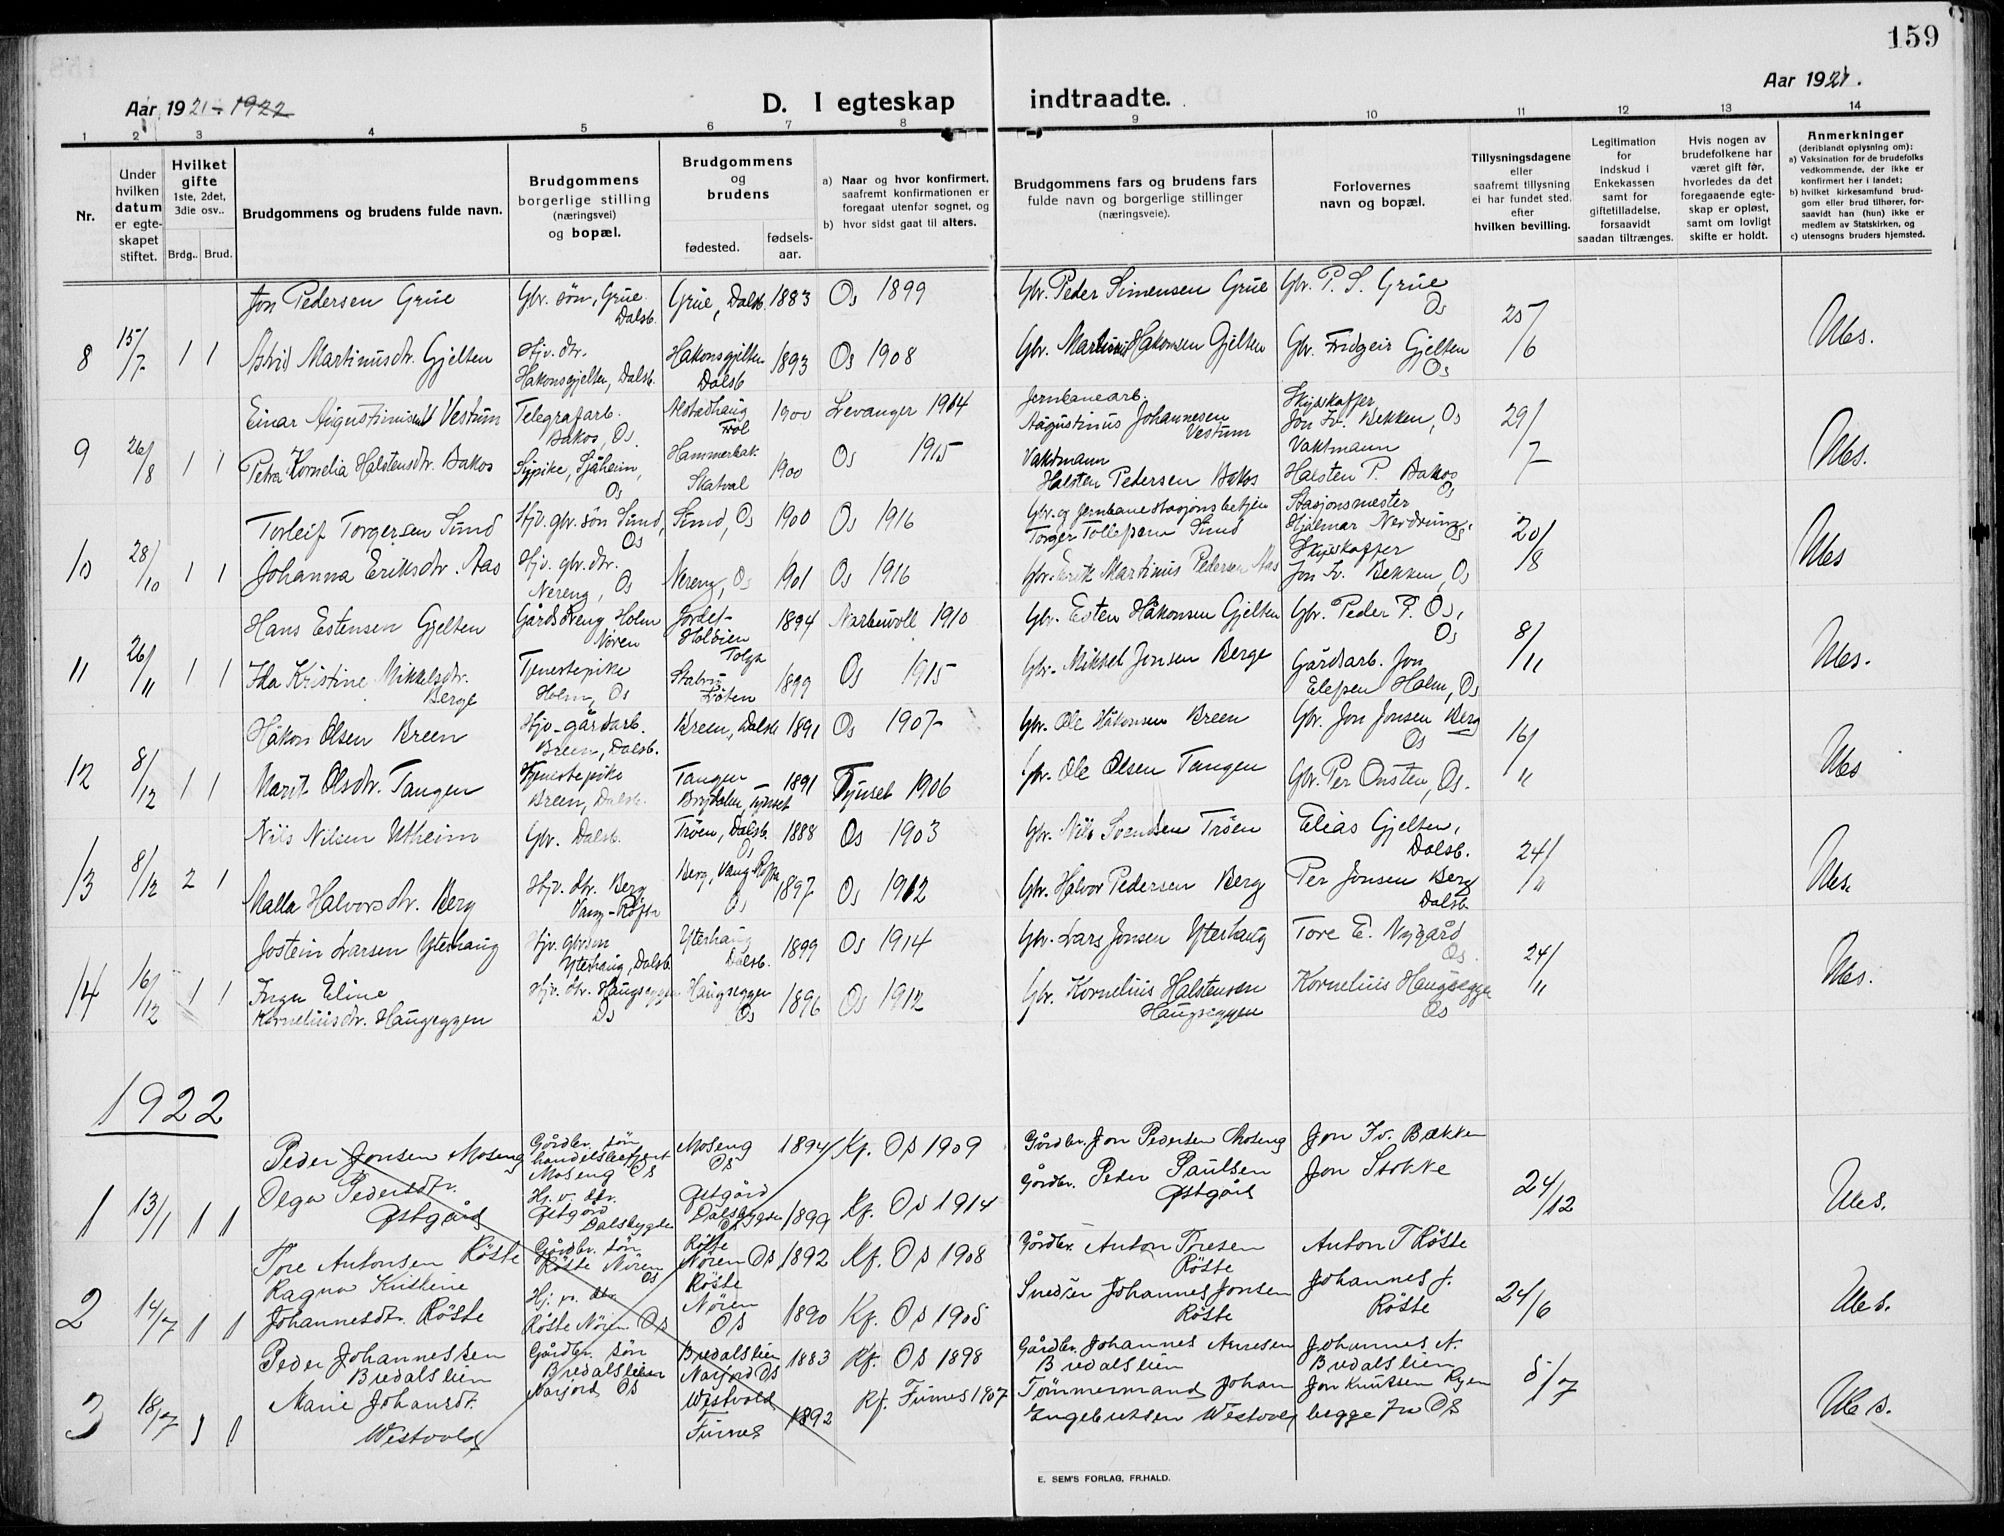 159
Aar 1921-1922
D. I egteskap indtraadte.
Aar 1921.
1 2 3 4 5 6 7 8 9 10 11 12 13 14
Nr.
Under hvilken datum er egteskapet stiftet.
Hvilket gifte 1ste, 2det, 3die osv..
Brdg.. Brud.
Brudgommens og brudens fulde navn.
Brudgommens borgerlige stilling (næringsvei) og bopæl.
Brudgommens og brudens
fødested.
fødsels-aar.
a) Naar og hvor konfirmert, saafremt konfirmationen er foregaat utenfor sognet, og
b) hvor sidst gaat til alters.
Brudgommens fars og brudens fars fulde navn og borgerlige stillinger (næringsveie).
Forlovernes navn og bopæl.
Tillysningsdagene eller saafremt tillysning ei har fundet sted, efter hvilken bevilling.
Legitimation for Indskud i Enkekassen samt for giftetilladelse, forsaavidt saadan tiltrænges.
Hvis nogen av brudefolkene har været gift før, hvorledes da det foregaaende egteskap er opløst, samt om lovligt skifte er holdt.
Anmerkninger (deriblandt oplysning om):
a) Vaksination for de brudefolks vedkommende, der ikke er konfirmert her i landet;
b) hvilket kirkesamfund brudgom eller brud tilhører, forsaavidt han (hun) ikke er medlem av Statskirken, og
c) utensogns bruders hjemsted.
Jon Pedersen Grue Gbr. søn, Grue Dalsb. Grue, Dalsb. 1883 Os 1899 Gbr. Peder Simensen Grue Gbr. P. S. Grue Os
8 15/7 1 1 Astrid Martinusdtr. Gjelten Hjv. dtr. Hakonsgjelten, Dalsb. Hakonsgjelten Dalsb 1893 Os 1908 Gbr. Martinus Hakonsen Gjelten Gbr. Fridgeir Gjelten Os 25/6
Einar Augustinussen Vestum Telegrafarb. Bakos, Os. Alstadhaug 1900 Levanger 1914 Jernbanearb. Augustinus Johannesen Vestum Skydskaffer Jon Fr. Bekken, Os
9 26/8 1 1 Petra Kornelia Halstensdtr. Bakos Sypike, Sjåheim, Os Hammerbak Skatval 1900 Os 1915 Vaktmann Halsten Pedersen Bakos Vaktmann Halsten P. Bakos Os 29/7
Torleif Torgersen Sund Hjv. gbr. søn Sund, Os Sund, Os 1900 Os 1916 Gbr. og Jernbanestasjonsbetjen Torger Tollefsen Sund Stasjonsmester Hjalmar Nordrum, Os
10 28/10 1 1 Johanna Eriksdtr. Aas Hjv. gbr. dtr. Nereng, Os Nereng, Os 1901 Os 1916 Gbr. Erik Martinus Pedersen Aas Skydskaffer Jon Fr. Bekken, Os 20/8
Hans Estensen Gjelten Gårdsdreng Holm Nøren Jordet-Holøien Tolga 1894 Narbuvoll 1910 Gbr. Esten Håkonsen Gjelten Gbr. Peder P. Os, Os
11 26/11 1 1 Ida Kristine Mikkelsdtr. Berge Tjenestepike Holm, Os Løten 1899 Os 1915 Gbr. Mikkel Jonsen Berge Gårdsarb. Jon Elefsen Holm, Os 8/11
Håkon Olsen Breen Hjv. gårdarb. Breen, Dalsb. Breen, Dalsb 1891 Os 1907 Gbr. Ole Håkonsen Breen Gbr. Jon Jonsen Berg Os
12 8/12 1 1 Marit Olsdtr. Tangen Tjenestepike Breen, Dalsb. Tangen Brydalen, Tynset 1891 Tynset 1906 Gbr. Ole Olsen Tangen Gbr. Per Onsten, Os. 16/11
Nils Nilsen Utheim Gbr. Dalsb. Trøen, Dalsb. Os 1888 Os 1903 Gbr. Nils Svendsen Trøen Elias Gjelten, Dalsb.
13 8/12 2 1 Malla Halvorsdtr. Berg Hjv. dtr. Berg Vang-Røfsn Berg, Vang-Røfsn Os 1897 Os 1912 Gbr. Halvor Pedersen Berg Per Jonsen Berg Dalsb. 24/11
Jostein Larsen Yterhaug Hjv. gbrsøn Yterhaug, Dalsb. Yterhaug Dalsb. 1899 Os 1914 Gbr. Lars Jonsen Yterhaug Tore E. Nygård Os.
14 16/12 1 1 Inga Eline Korneliusdtr. Haugseggen Hjv. dtr. Haugseggen Os Haugseggen Os 1896 Os 1912 Gbr. Kornelius Halstensen Haugseggen Kornelius Haugseggen Os 24/11
1922
Peder Jonsen Moseng Gårdbr. søn handelsbetjent Moseng Os Moseng Os 1894 Kf. Os 1909 Gårdbr. Jon Pedersen Moseng Jon Fr. Bækken
1 13/1 1 1 Olga Pedersdtr. Østgård Hj. v. dtr. Østgård Dalsbygden Østgård Dalsbygden 1899 Kf. Os 1914 Gårdbr. Peder Paulsen Østgård Jon Stokke 24/12
Tore Antonsen Røste Gårdbr. søn Røste Nøren Os Røste Nøren Os 1892 Kf. Os 1908 Gårdbr. Anton Toresen Røste Anton T Røste
2 14/7 1 1 Ragna Kristine Johannesdtr. Røste Hj. v. dtr. Røste Nøren Os Røste Nøren Os 1890 Kf. Os 1905 Snedker Johannes Jonsen Røste Johannes J. Røste 24/6
Peder Johannessen Bredalslien Gårdbr. søn Bredalslien Narjord Os Bredalslien Narjord Os 1883 Kf. Os 1898 Gårdbr. Johannes Arnesen Bredalslien Johannes A. Bredalslien
3 18/7 1 1 Marie Johansdt. Westvold Westvold Furnes 1892 Kf. Furnes 1907 Tømmermand Johan Engebretsen Westvold Jon Knutsen Ryen begge fra Os 5/7
E. SEM'S FORLAG, FR.HALD.